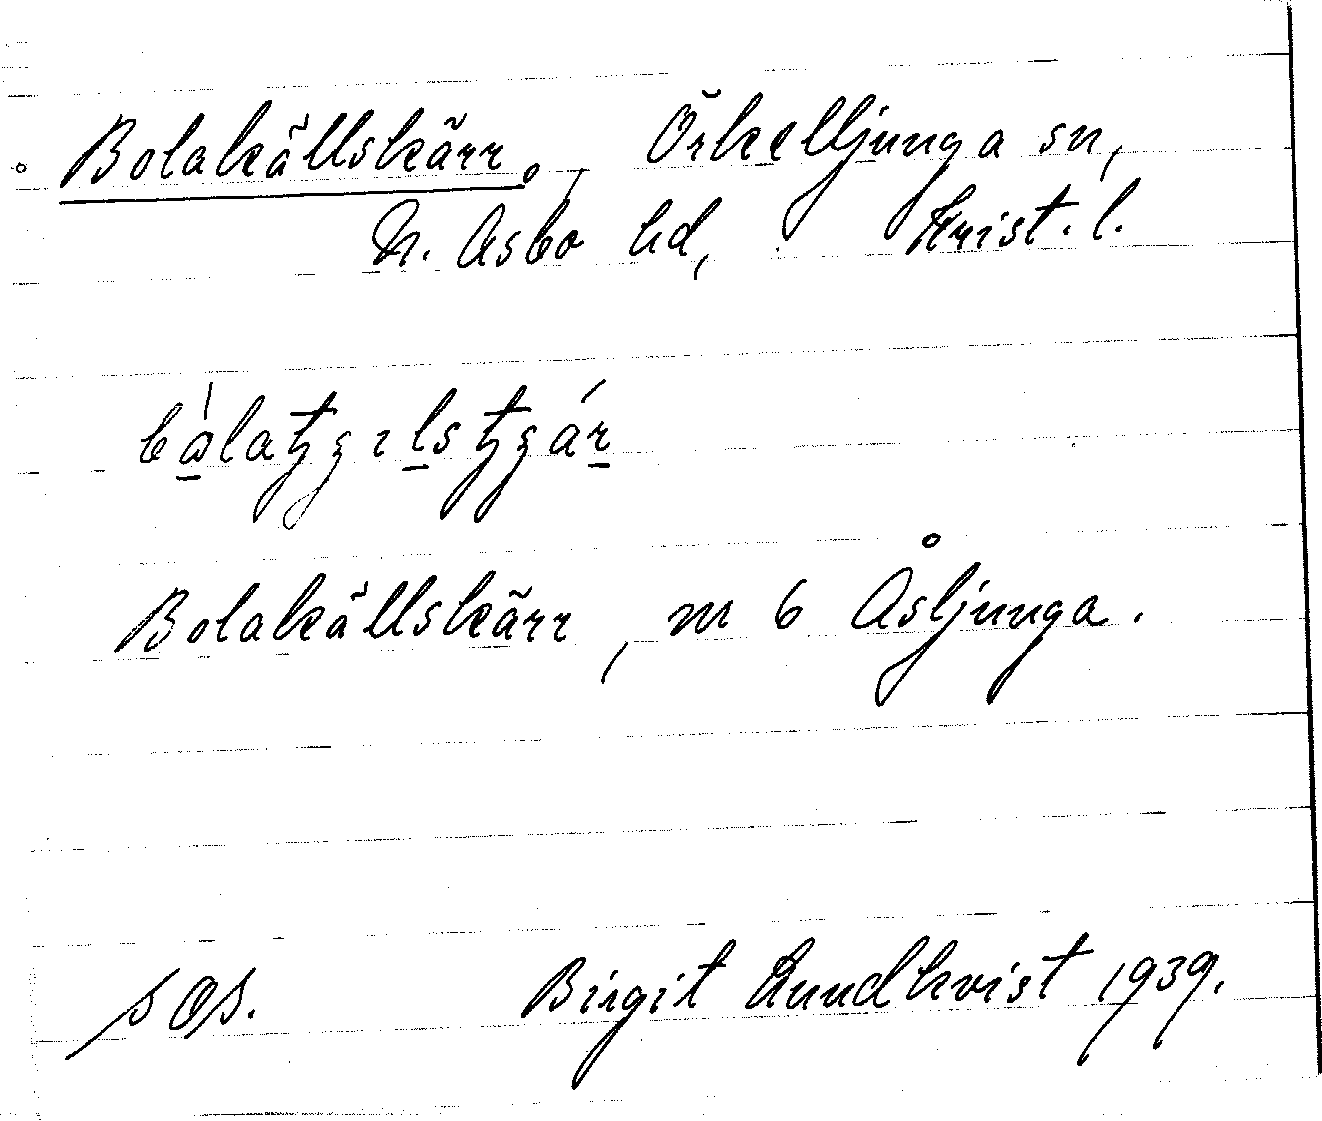 Bolakällskärr. Örkelljunga sn,
N. Åsbo hd, Krist. l.
Bolakällskärr, m 6 Åsljunga.
SOS. Birgit Lundkvist 1939.